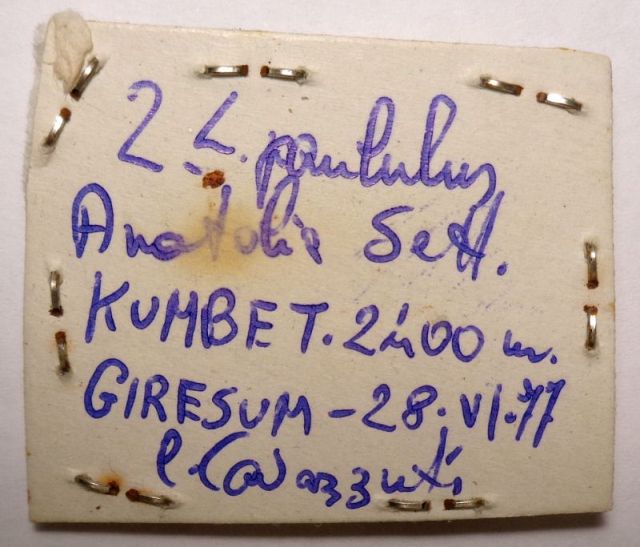 2 L. paululus
Anatolia Sett.
KUMBET. 2400 m.
GIRESUM - 28. VI. 77
l. Cavazzuti